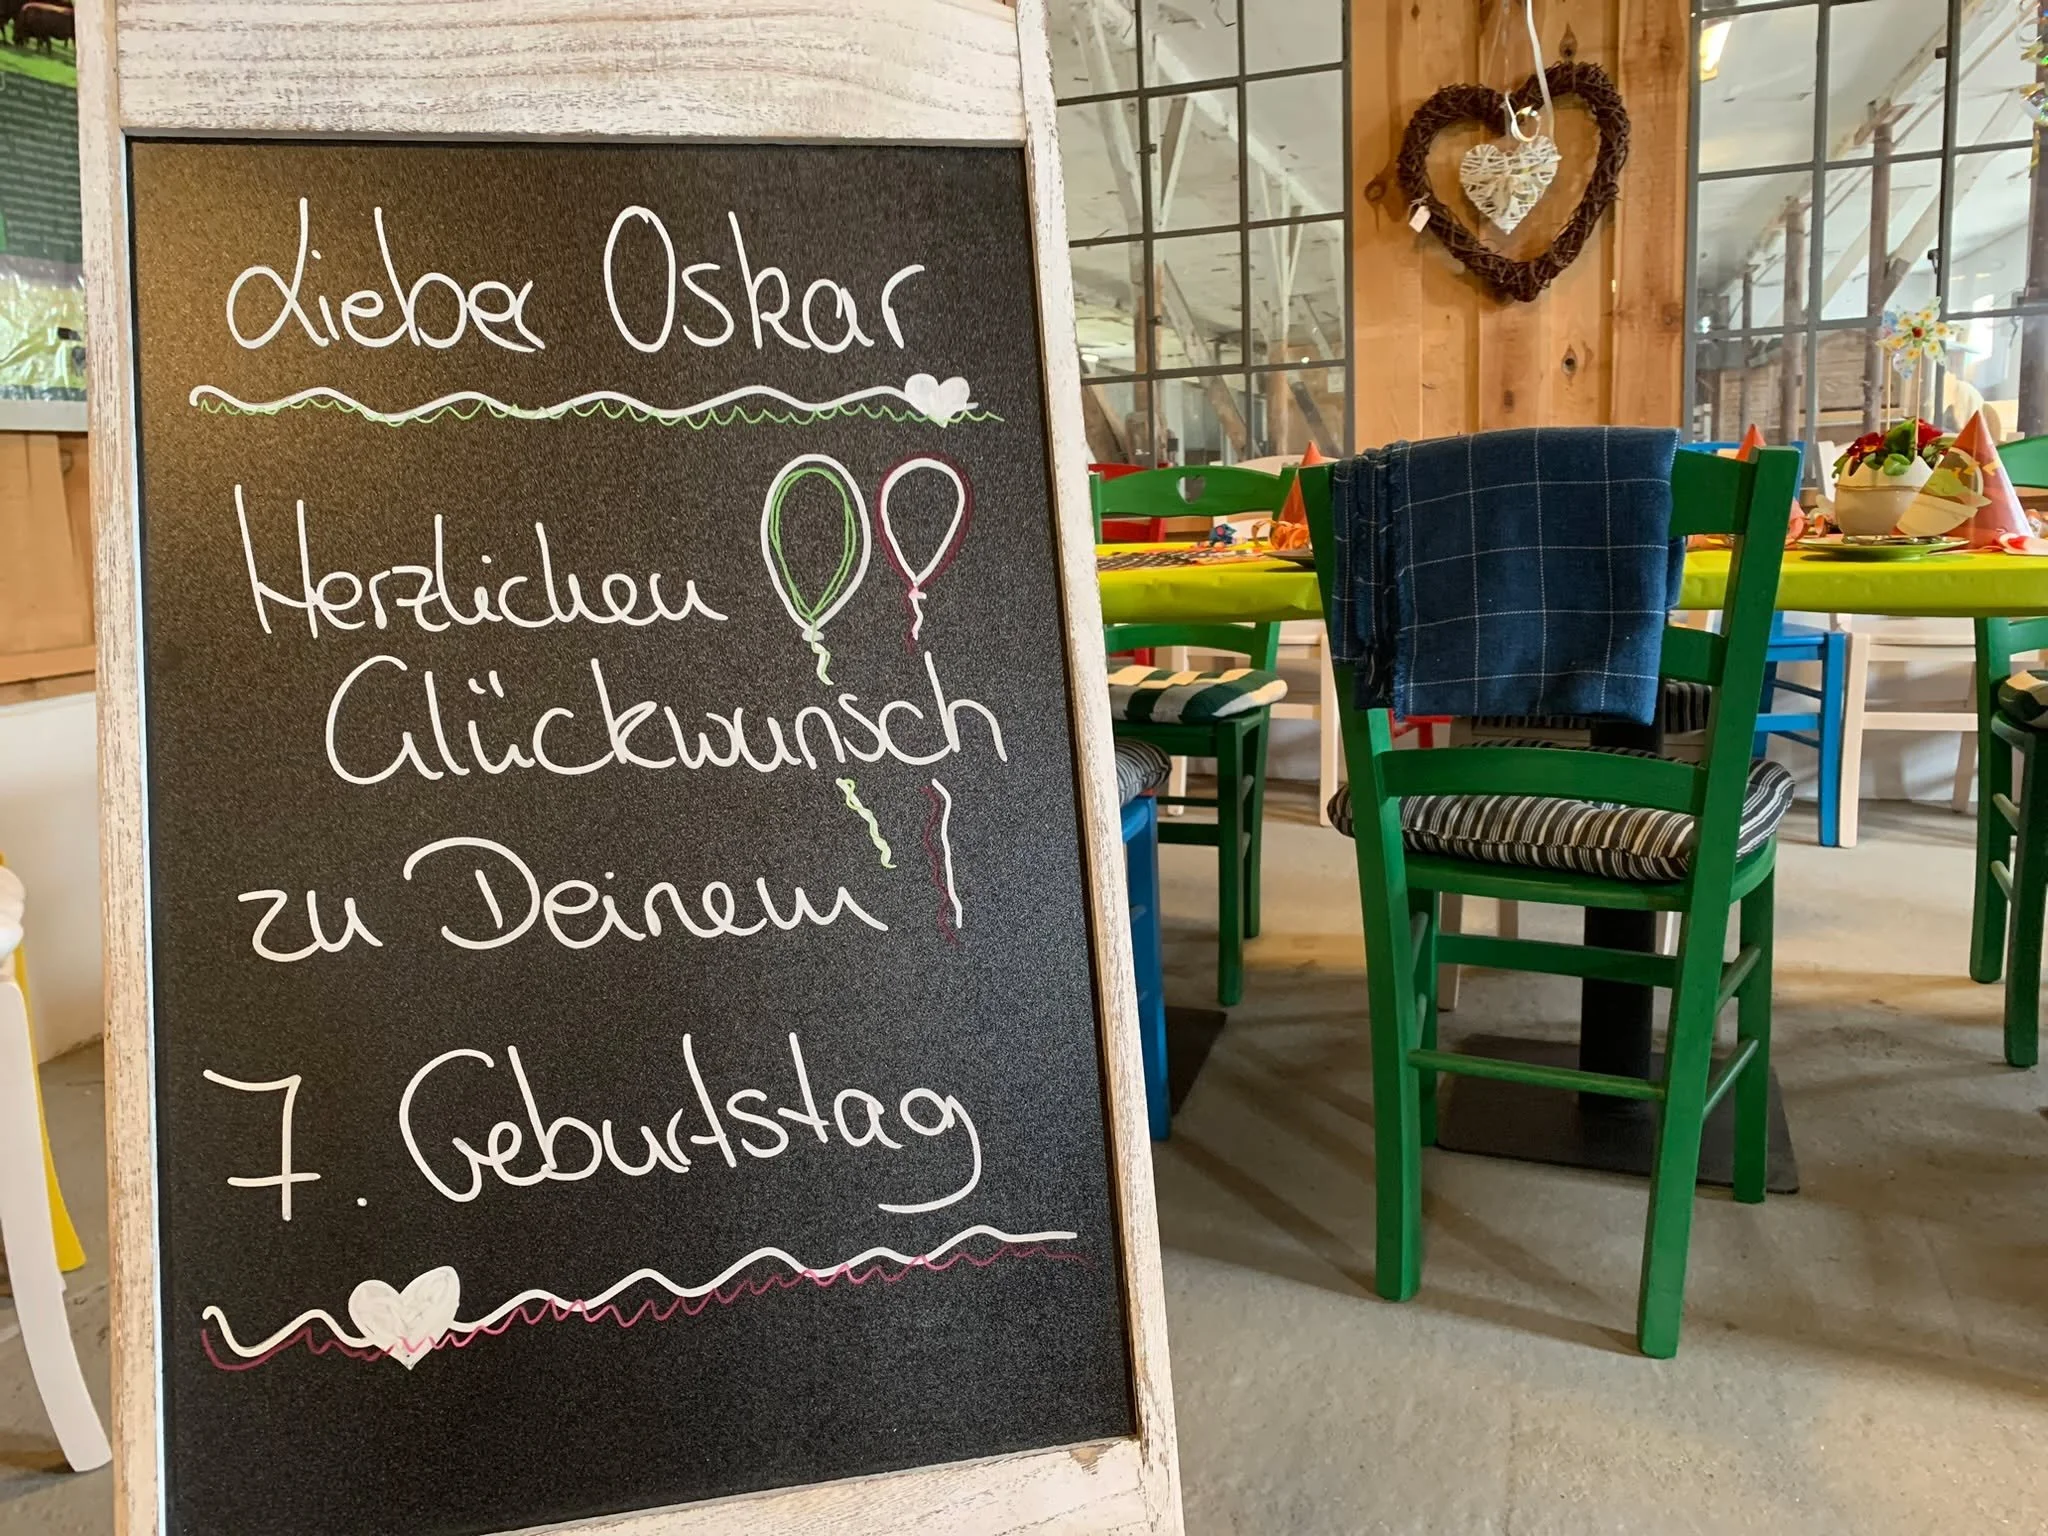 Lieber Oskar
Herzlichen
Glückwunsch
zu Deinem
7. Geburtstag